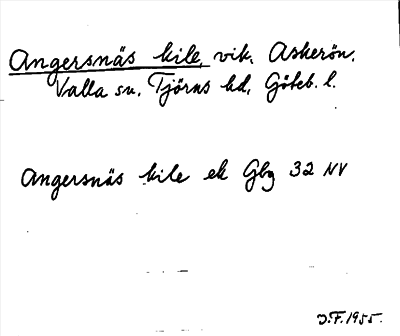 Angersnäs kile, vik, Askerön,
Valla sn, Tjörns hd, Göteb. l.
Angersnäs kile ek Gbg 32 NV
J.F. 1955.